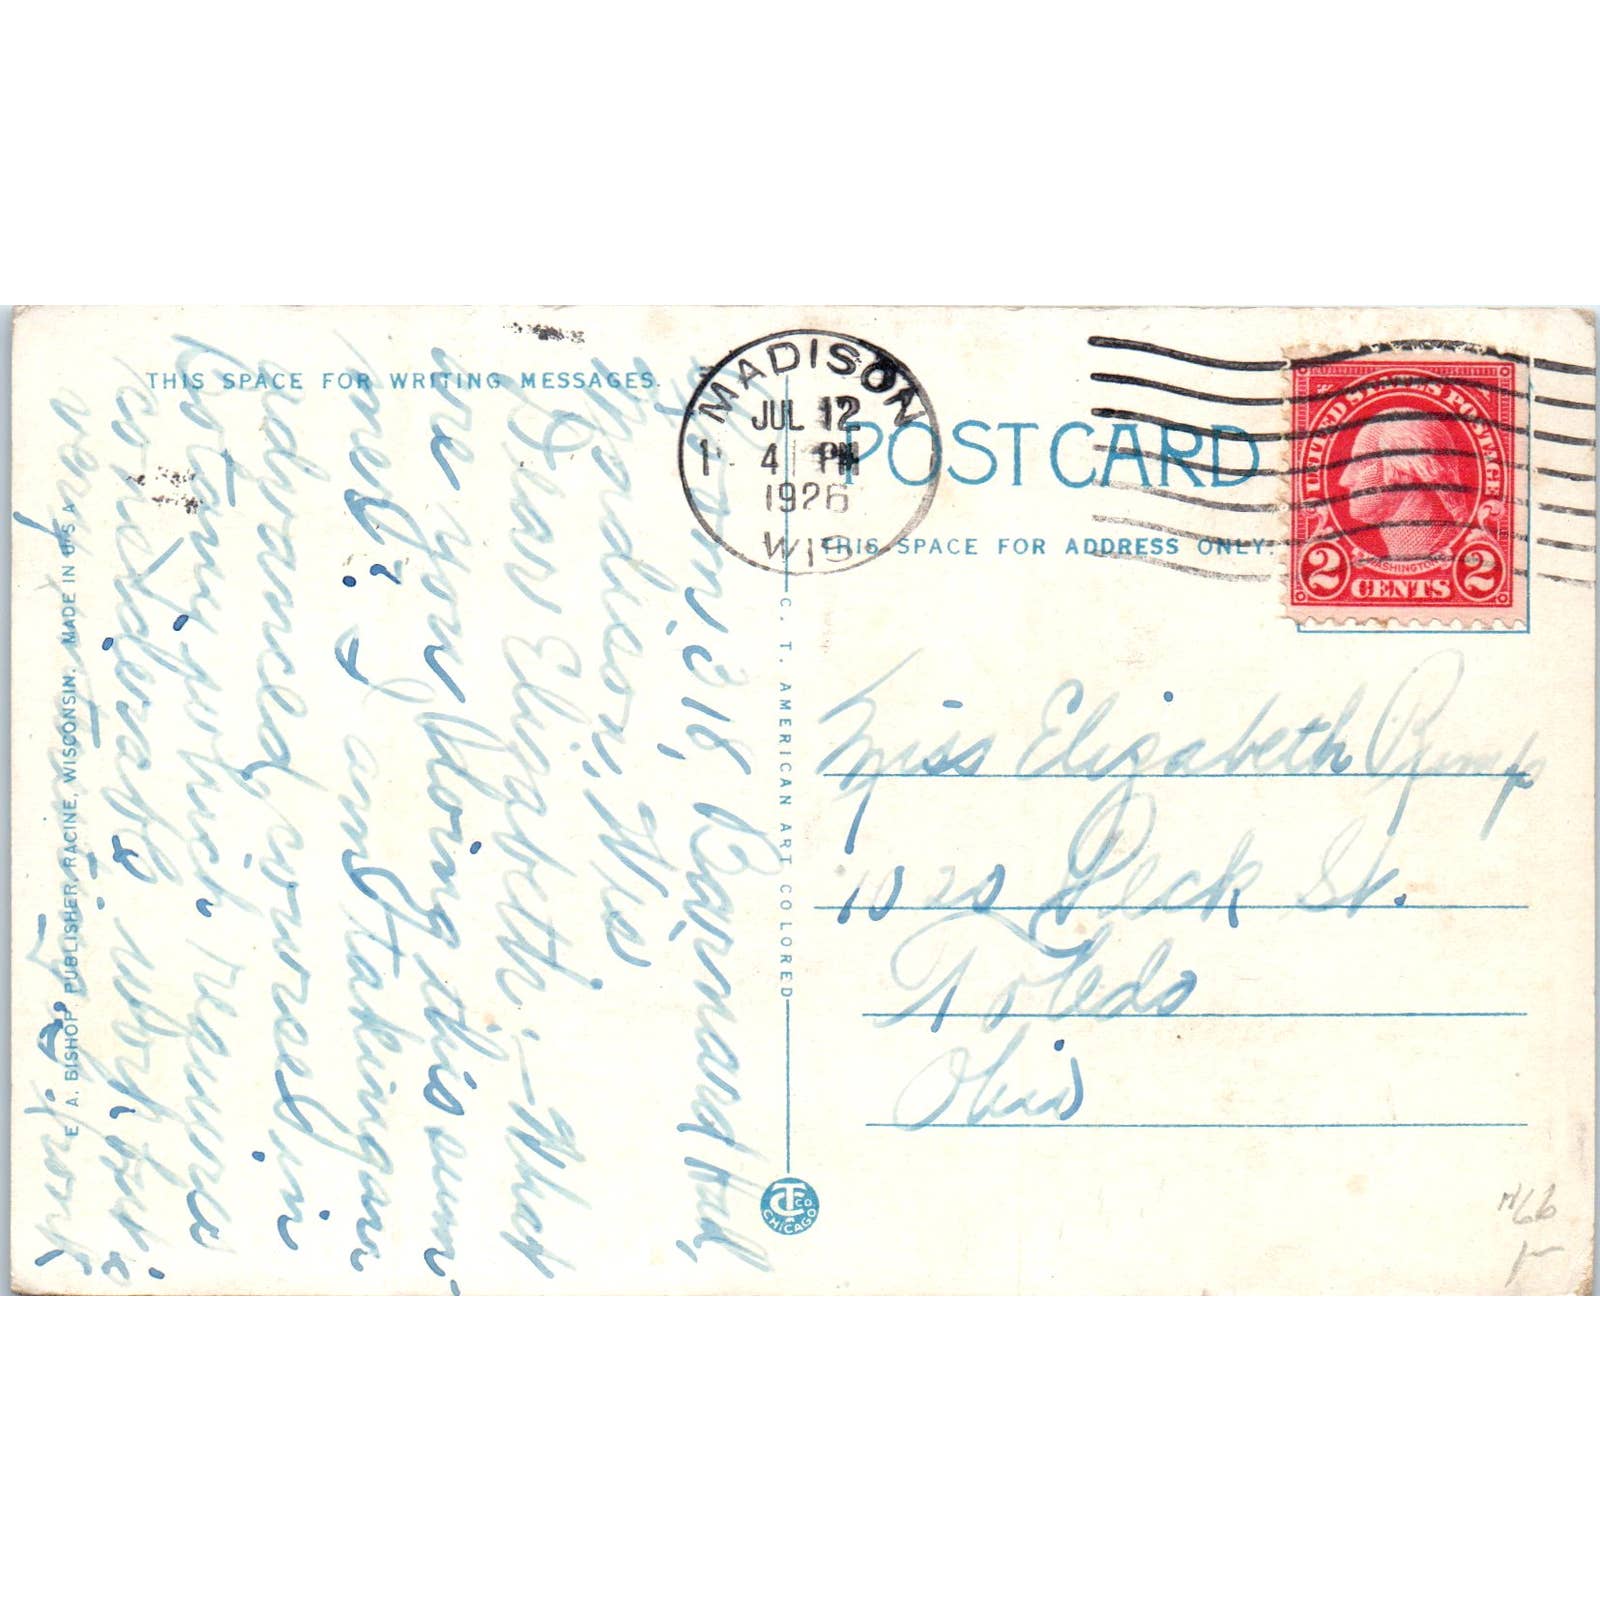 THIS SPACE FOR WRITING MESSAGES.
Room 316 Barnard Hall,
Madison, Wis
Dear Elizabeth:— What
are you doing this sum-
mer? I am taking an
advanced course in
Botany which requires
considerable work. It is
very interesting work
E. A. BISHOP, PUBLISHER, RACINE, WISCONSIN. MADE IN U.S.A.
C. T. AMERICAN ART COLORED
C T CO
CHICAGO
MADISON
JUL 12
1 4 PM
1926
WIS
POST CARD
THIS SPACE FOR ADDRESS ONLY.
UNITED STATES POSTAGE
WASHINGTON
2 CENTS 2
Miss Elizabeth
1020 Peck St.
Toledo
Ohio